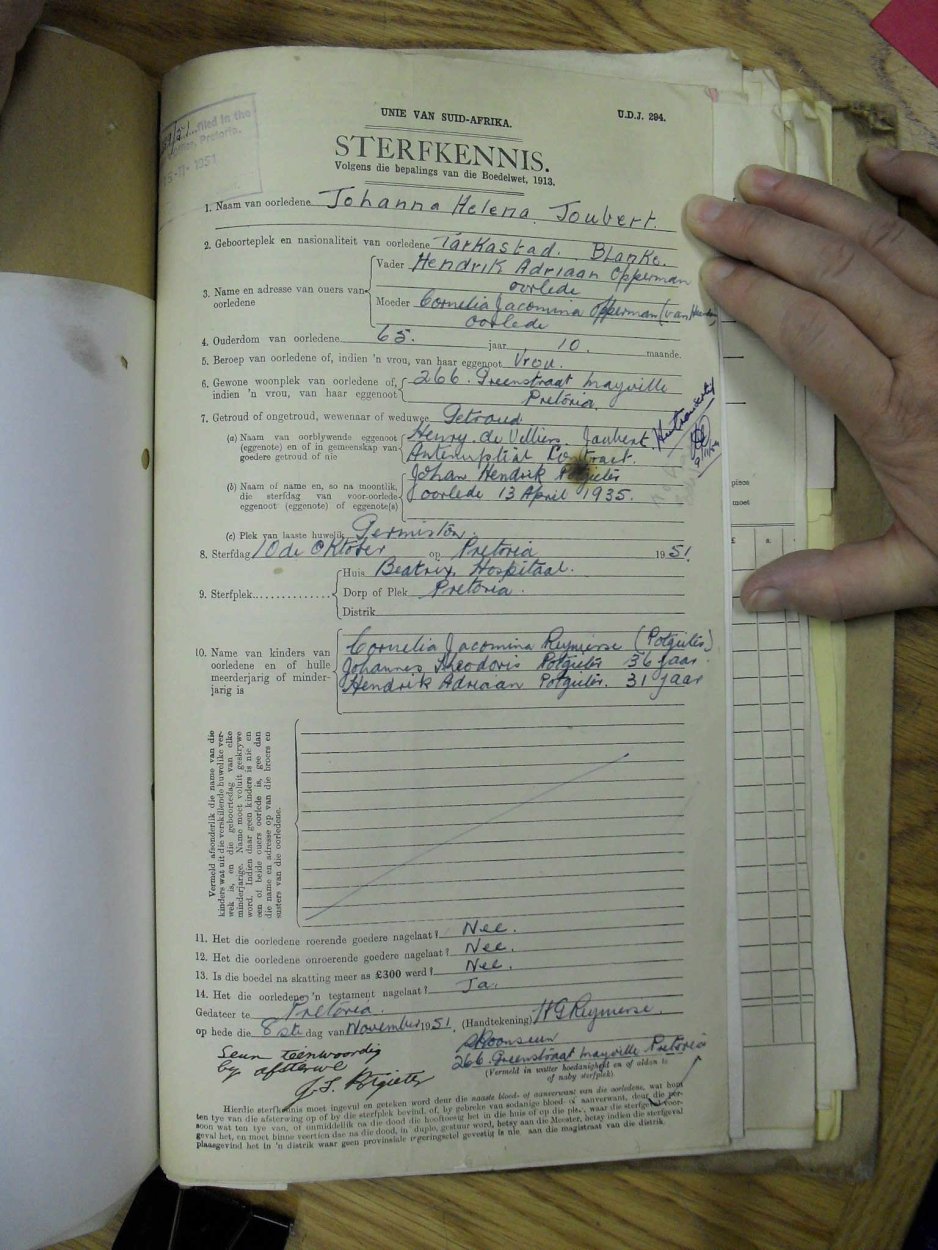 filed in the
Pretoria.
15-11-1951
UNIE VAN SUID-AFRIKA.
U.D.J. 294.
STERFKENNIS.
Volgens die bepalings van die Boedelwet, 1913.
1. Naam van oorledene Johanna Helena Joubert.
2. Geboorteplek en nasionaliteit van oorledene Tarkastad. Blanke.
3. Name en adresse van ouers van oorledene
Vader Hendrik Adriaan Opperman
oorlede
Moeder Cornelia Jacomina Opperman (van
oorlede
4. Ouderdom van oorledene 65. jaar 10. maande.
5. Beroep van oorledene of, indien 'n vrou, van haar eggenoot Vrou.
6. Gewone woonplek van oorledene of, 266 Greenstraat Mayville
indien 'n vrou, van haar eggenoot Pretoria.
7. Getroud of ongetroud, wewenaar of weduwee Getroud
(a) Naam van oorblywende eggenoot Henry de Villiers Joubert
(eggenote) en of in gemeenskap van Antenuptial Contract.
goedere getroud of nie
(b) Naam of name en, so na moontlik, Johan Hendrik Potgieter
die sterfdag van voor-oorlede oorlede 13 April 1935.
eggenoot (eggenote) of eggenote(s)
(c) Plek van laaste huwelik Germiston
8. Sterfdag 10de Oktober op Pretoria 1951.
9. Sterfplek
Huis Beatrix Hospitaal.
Dorp of Plek Pretoria.
Distrik
10. Name van kinders van Cornelia Jacomina Reynierse (Potgieter)
oorledene en of hulle Johannes Theodoris Potgieter 36 jaar.
meerderjarig of minder- Hendrik Adriaan Potgieter. 31 jaar
jarig is
Vermeld afsonderlik die name van die
kinders wat uit die verskillende huwelike ver-
wek is, en die geboortedag van elke
minderjarige. Name moet voluit geskrywe
word. Indien daar geen kinders is nie en
een of beide ouers oorlede is, gee dan
die name en adresse op van die broers en
susters van die oorledene.
11. Het die oorledene roerende goedere nagelaat? Nee.
12. Het die oorledene onroerende goedere nagelaat? Nee.
13. Is die boedel na skatting meer as £300 werd? Nee.
14. Het die oorledene 'n testament nagelaat? Ja.
Gedateer te Pretoria.
op hede die 8ste dag van November 1951. (Handtekening) H G Reynierse.
Skoonseun
266. Greenstraat Mayville Pretoria
(Vermeld in watter hoedanigheid en of aldan te
of naby sterfplek).
Seun teenwoordig
by afsterwe
J.T. Potgieter
Hierdie sterfkennis moet ingevul en geteken word deur die naaste bloed- of aanverwant van die oorledene, wat
ten tye van die afsterwing op of by die sterfplek bevind, of, by gebreke van sodanige bloed- of aanverwant, deur die per-
soon wat ten tye van, of onmiddellik na die dood die hooftoesig het in die huis of op die plek, waar die sterfgeval voor-
geval het, en moet binne veertien dae na die dood, in duplo, gestuur word, hetsy aan die Meester, hetsy indien die sterfgeval
plaasgevind het in 'n distrik waar geen provinsiale regeringsetel gevestig is nie, aan die magistraat van die distrik.